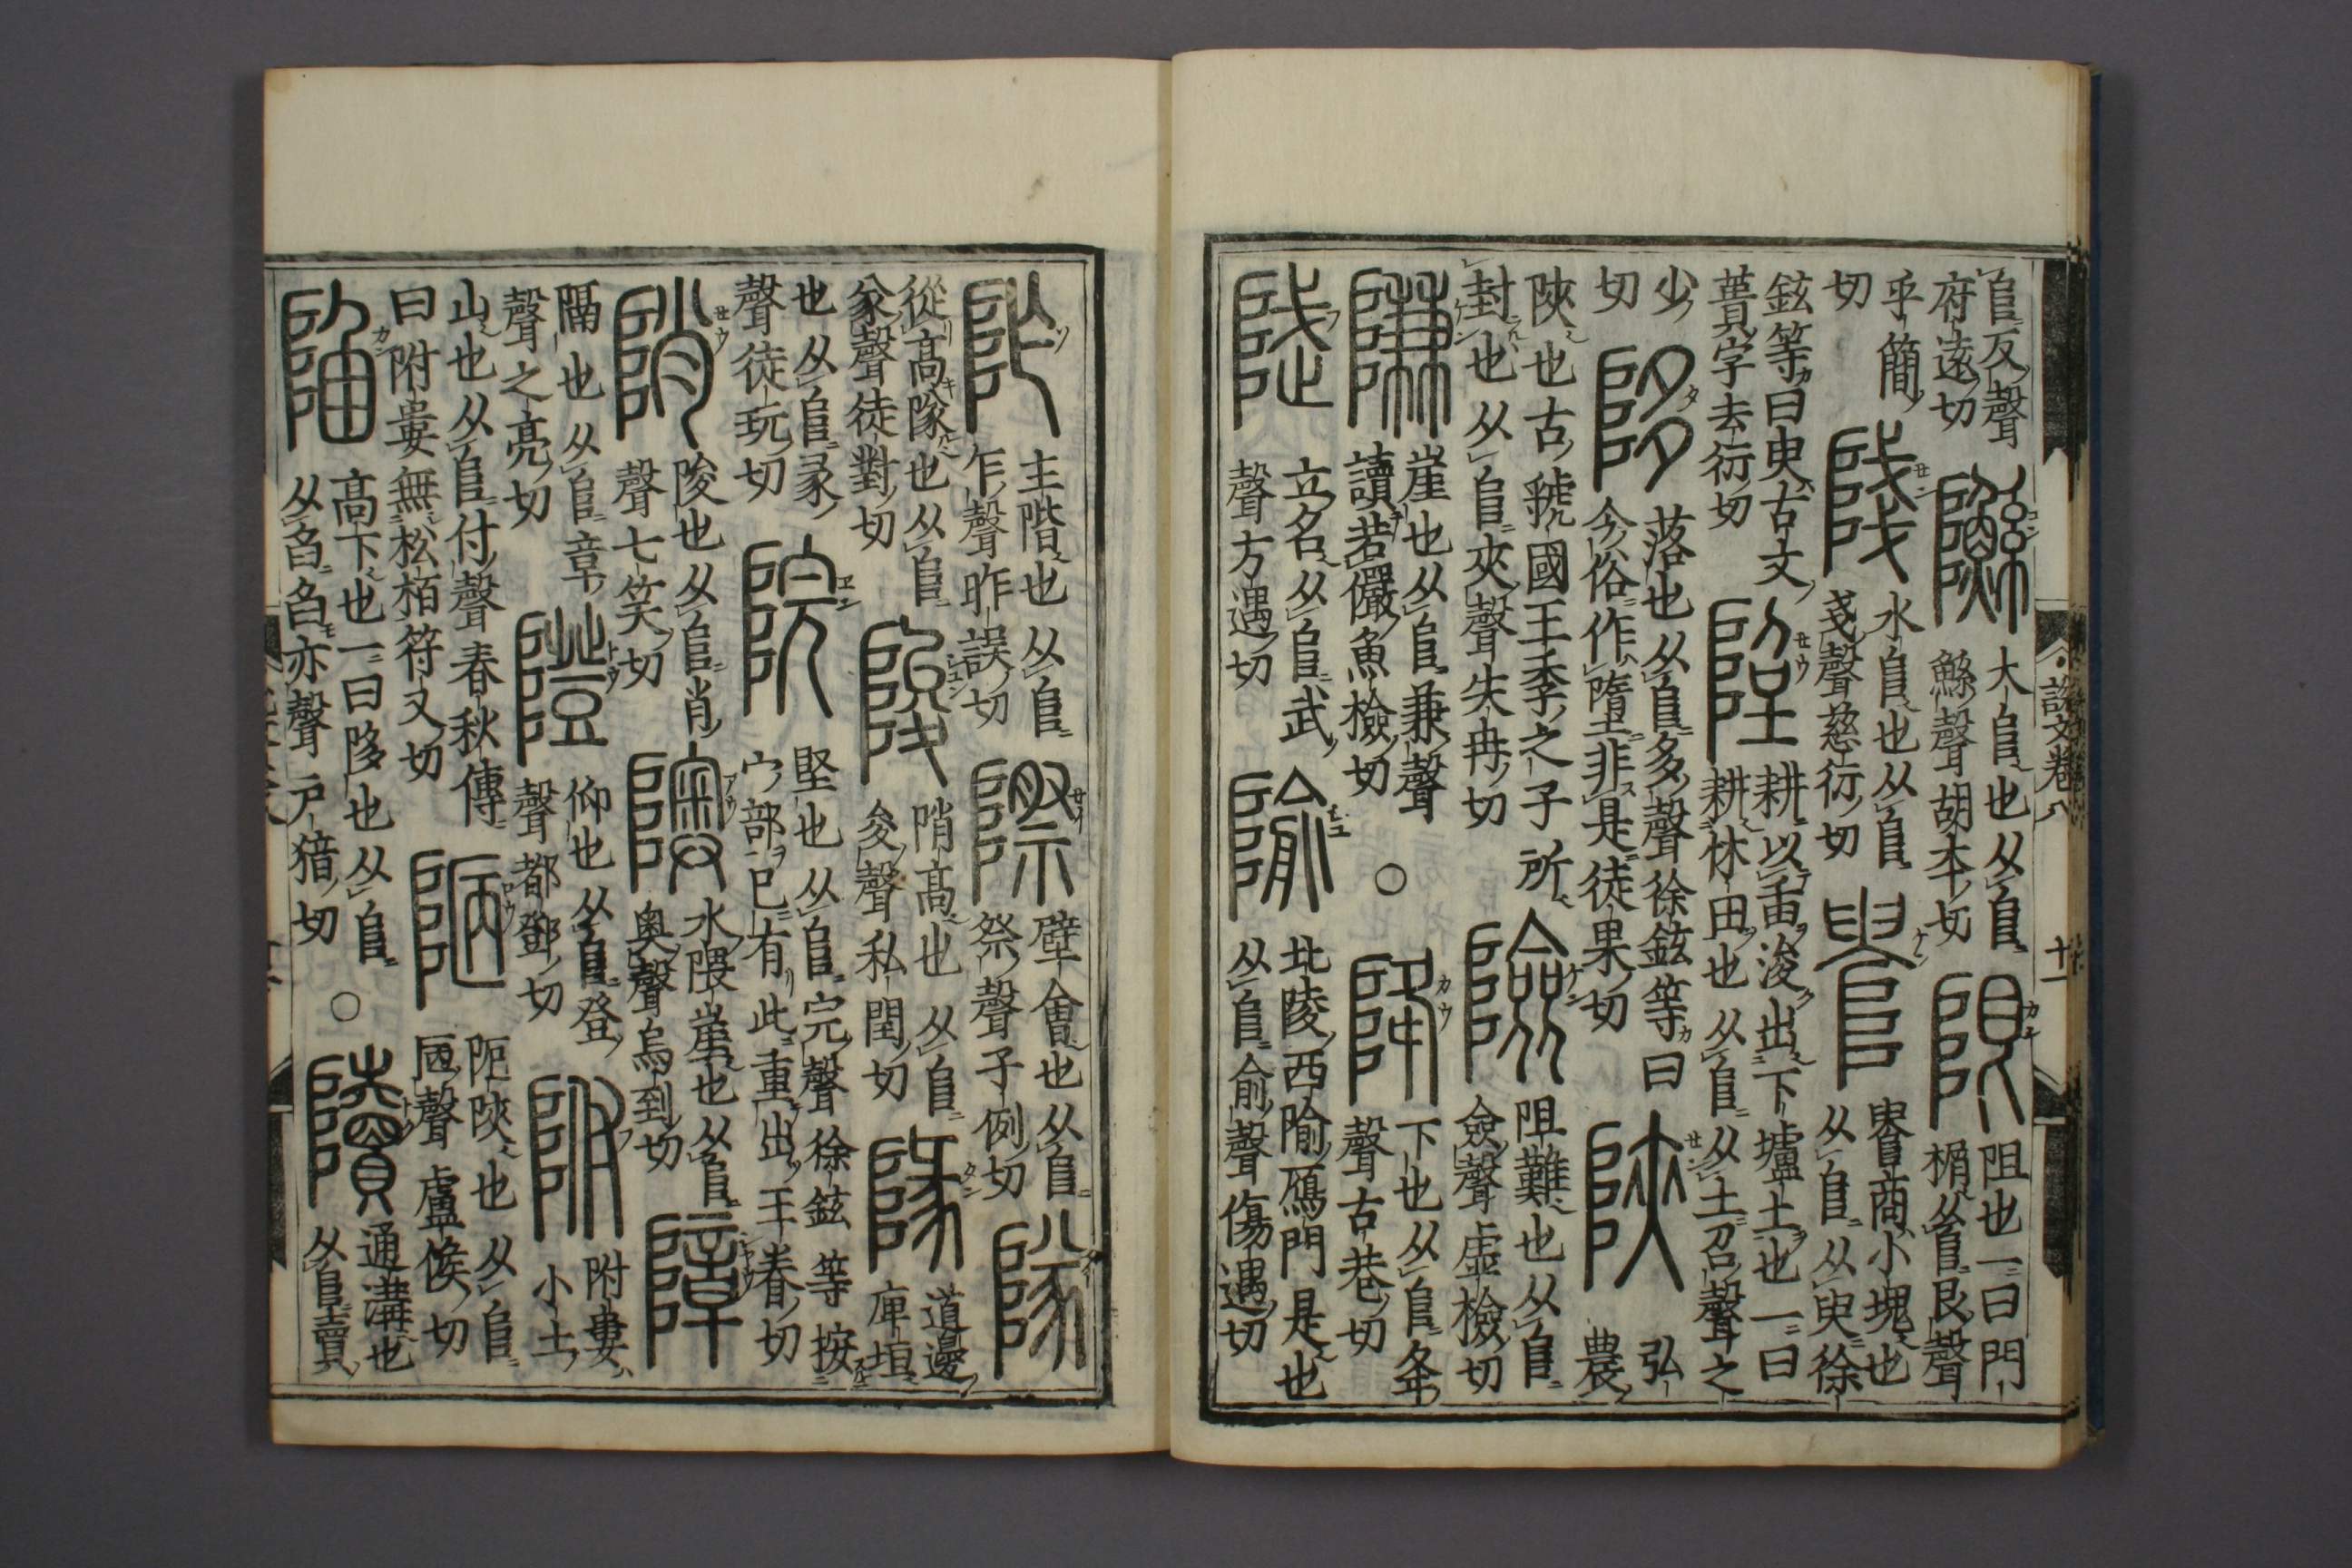 𨸏反聲
府遠切
䧰
大𨸏也从𨸏
鯀聲胡本切
限
阻也一曰門
榍从𨸏艮聲
乎簡
切
水𨸏也从𨸏
戔聲慈衍切
𠳋商小塊也
从𨸏从臾徐
鉉等曰臾古文
蕢字去衍切
耕以臿浚出下壚土也一曰
耕休田也从𨸏从土召聲之
少
切
陊
落也从𨸏多聲徐鉉等曰
今俗作墮非是徒果切
陝
弘
農
陝也古虢國王季之子所
封也从𨸏夾聲失冉切
險
阻難也从𨸏
僉聲虛檢切
隒
崖也从𨸏兼聲
讀若儼魚檢切
○
降
下也从𨸏夅
聲古巷切
名从𨸏武
聲方遇切
隃
北陵西隃鴈門是也
从𨸏俞聲傷遇切
說文卷八
十一
阼
主階也从𨸏
乍聲昨誤切
際
壁會也从𨸏
祭聲子例切
隊
從高隊也从𨸏
㒸聲徒對切
陖
陗高也从𨸏
夋聲私閏切
道邊
庳垣
也从𨸏彖
聲徒玩切
院
堅也从𨸏完聲徐鉉等按
宀部已有此重出王眷切
陗
陵也从𨸏肖
聲七笑切
隩
水隈崖也从𨸏
奧聲烏到切
障
隔也从𨸏章
聲之亮切
隥
仰也从𨸏登
聲都鄧切
附
附婁
小土
山也从𨸏付聲春秋傳
曰附婁無松栢符又切
陋
阨陜也从𨸏
㔷聲盧候切
陷
高下也一曰陊也从𨸏
从臽臽亦聲戶猪切
○
通溝也
从𨸏𧶠